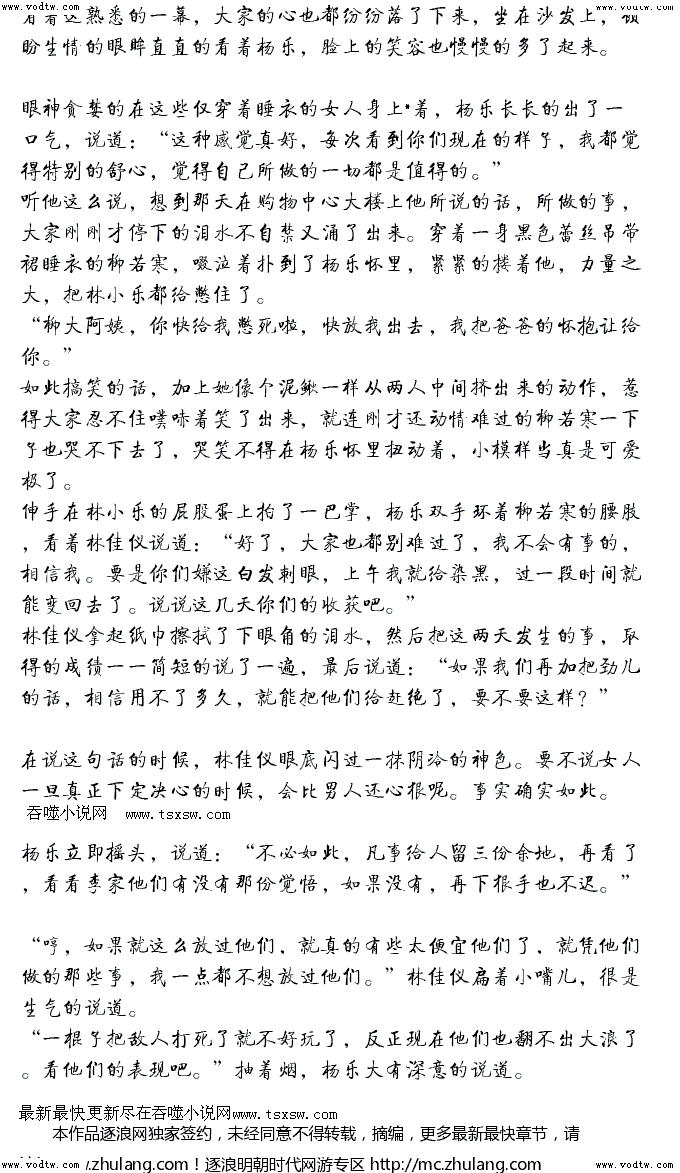 www.vodtw.com www.vodtw.com www.vodtw.com
看着这熟悉的一幕，大家的心也都纷纷落了下来，坐在沙发上，顾
盼生情的眼眸直直的看着杨乐，脸上的笑容也慢慢的多了起来。
眼神贪婪的在这些仅穿着睡衣的女人身上*着，杨乐长长的出了一
口气，说道：“这种感觉真好，每次看到你们现在的样子，我都觉
得特别的舒心，觉得自己所做的一切都是值得的。”
听他这么说，想到那天在购物中心大楼上他所说的话，所做的事，
大家刚刚才停下的泪水不自禁又涌了出来。穿着一身黑色蕾丝吊带
裙睡衣的柳若寒，啜泣着扑到了杨乐怀里，紧紧的搂着他，力量之
大，把林小乐都给憋住了。
“柳大阿姨，你快给我憋死啦，快放我出去，我把爸爸的怀抱让给
你。”
如此搞笑的话，加上她像个泥鳅一样从两人中间挤出来的动作，惹
得大家忍不住噗哧着笑了出来，就连刚才还动情难过的柳若寒一下
子也哭不下去了，哭笑不得在杨乐怀里扭动着，小模样当真是可爱
极了。
伸手在林小乐的屁股蛋上拍了一巴掌，杨乐双手环着柳若寒的腰肢
，看着林佳仪说道：“好了，大家也都别难过了，我不会有事的，
相信我。要是你们嫌这白发刺眼，上午我就给染黑，过一段时间就
能变回去了。说说这几天你们的收获吧。”
林佳仪拿起纸巾擦拭了下眼角的泪水，然后把这两天发生的事，取
得的成绩一一简短的说了一遍，最后说道：“如果我们再加把劲儿
的话，相信用不了多久，就能把他们给赶绝了，要不要这样？”
在说这句话的时候，林佳仪眼底闪过一抹阴冷的神色。要不说女人
一旦真正下定决心的时候，会比男人还心狠呢。事实确实如此。
吞噬小说网 www.tsxsw.com
杨乐立即摇头，说道：“不必如此，凡事给人留三份余地，再看了
，看看李家他们有没有那份觉悟，如果没有，再下狠手也不迟。”
“哼，如果就这么放过他们，就真的有些太便宜他们了，就凭他们
做的那些事，我一点都不想放过他们。”林佳仪扁着小嘴儿，很是
生气的说道。
“一棍子把敌人打死了就不好玩了，反正现在他们也翻不出大浪了
。看他们的表现吧。”抽着烟，杨乐大有深意的说道。
最新最快更新尽在吞噬小说网www.tsxsw.com
本作品逐浪网独家签约，未经同意不得转载，摘编，更多最新最快章节，请
www.zhulang.com！逐浪明朝时代网游专区 http://mc.zhulang.com/
www.vodtw.com www.vodtw.com www.vodtw.com